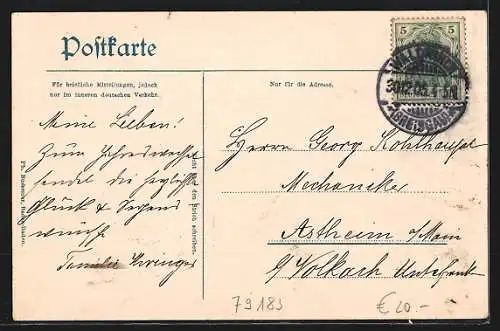 Postkarte
Für briefliche Mitteilungen, jedoch
nur im inneren deutschen Verkehr.
Nur für die Adresse.
5 5
30.12.05. 4-5N
(BREISGAU)
Meine Lieben!
Zum Jahreswechsel
sendet die herzlichsten
Glück & Segens
wünsche
Familie
Herrn Georg Kohlhaupt
Mechaniker
Astheim a/Main
b/Volkach Unterfrank
79183
€ 20.-